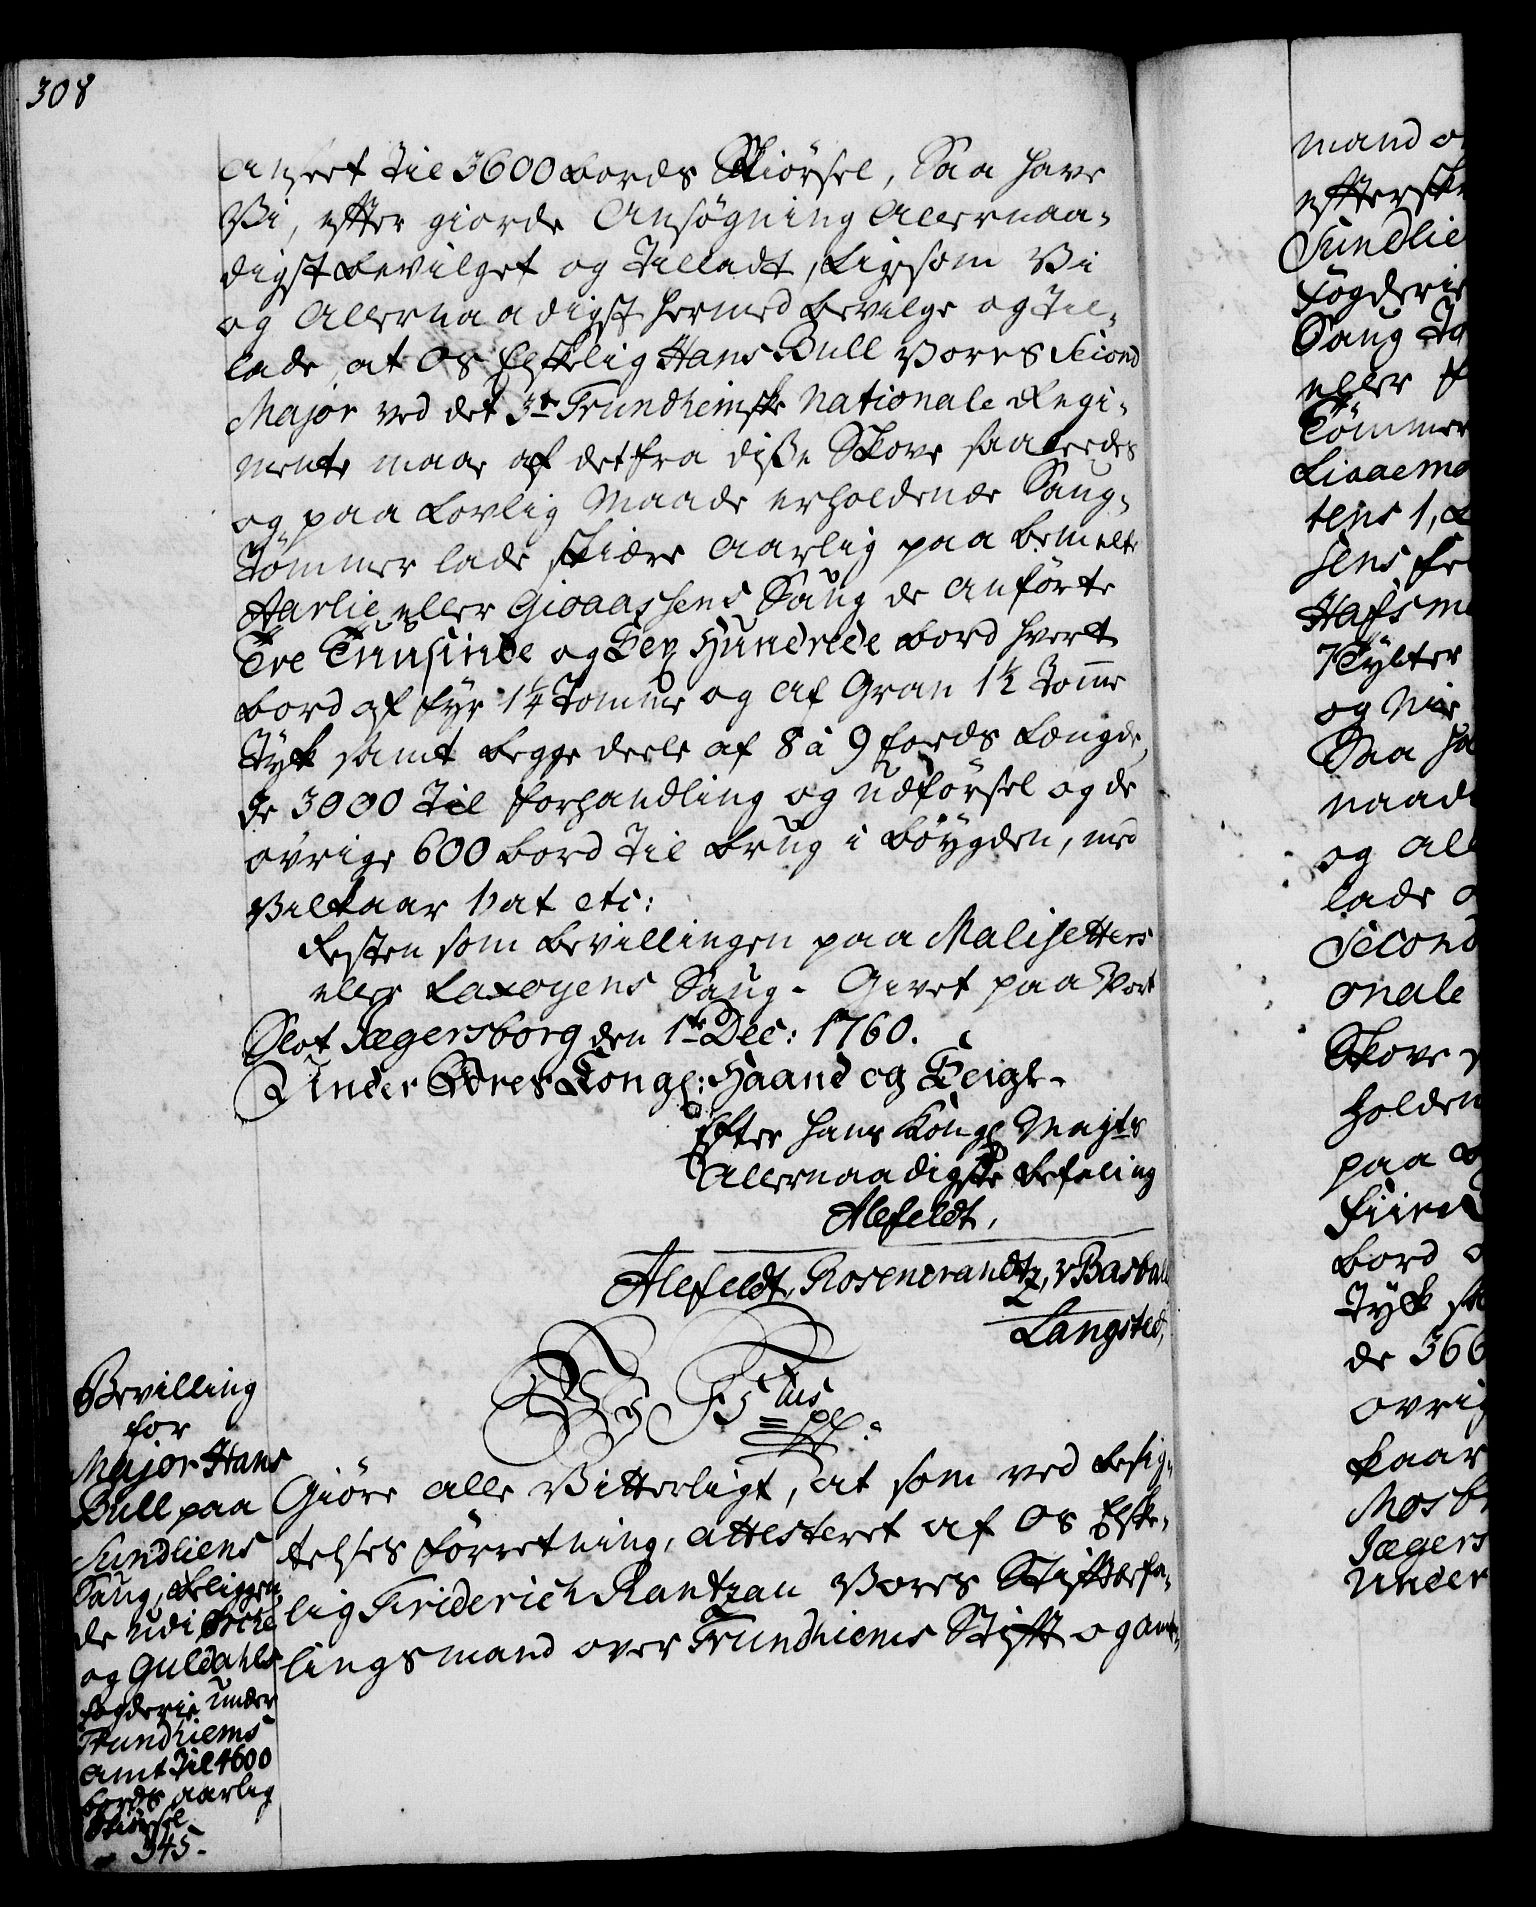 308
anseet til 3600 bords Skiørsel, Saa have
Vi, efter giorde Ansøgning Allernaa-
digst bevilget og Tilladt, Ligesom Vi
og Allernaadigst hermed bevilge og Til-
lade, at Os Elskelig Hans Bull Vores Second
Major ved det 3te Trundhiemske Nationale Regi-
mente maae af det fra diße Skove saaledes
og paa Lovlig Maade erholdende Saug-
Tømmer lade skiære Aarlig paa bemelte
Aarlie eller Gioaassens Saug de anførte
Tre Tuusinde og Sex Hundrede bord hvert
bord af fyr 1¼ Tomme og af Gran 1½ Tomme
Tyk samt begge deele af 8 à 9 fods Længde,
de 3000 Til forhandling og udførsel og de
øvrige 600 bord Til brug i bøygden, med
Vilkaar 1 at etc:
Resten som bevillingen paa Malisetters
eller Laxøyens Saug. Givet paa Vort
Slot Jægersborg den 1te Dec: 1760.
Under Vores Kongl: Haand og Seigl.
Efter Hans Kongl Majts
Allernaadigste Befaling
Alefeldt.
Alefeldt, Rosencrandtz, v Basball
Langsted,
Bevilling
for
Major Hans
Bull paa
Sundliens
Saug, beliggen
de udi Strie
og Guldahls
fogderie under
Trundhiems
Amt Til 4600
bords aarlig
Skiørsel.
345.
Vi F 5tus
pp:
Giøre alle Vitterligt, at som ved besig-
telses forretning, attesteret af Os Elske-
lig Friderich Rantzau Vores Stiftbefa-
lingsmand over Trundhiems Stift og Amt,
mand o
Sundlie
fogderie
Saug To
eller f
Tømmer
tens 1, L
7 Tylter
og Nie
Saa ha
naadi
og all
lade
Second
onale
Skove
holden
paa
bord
Tyk sa
de 366
øvrig
kaar
Jægers
Under